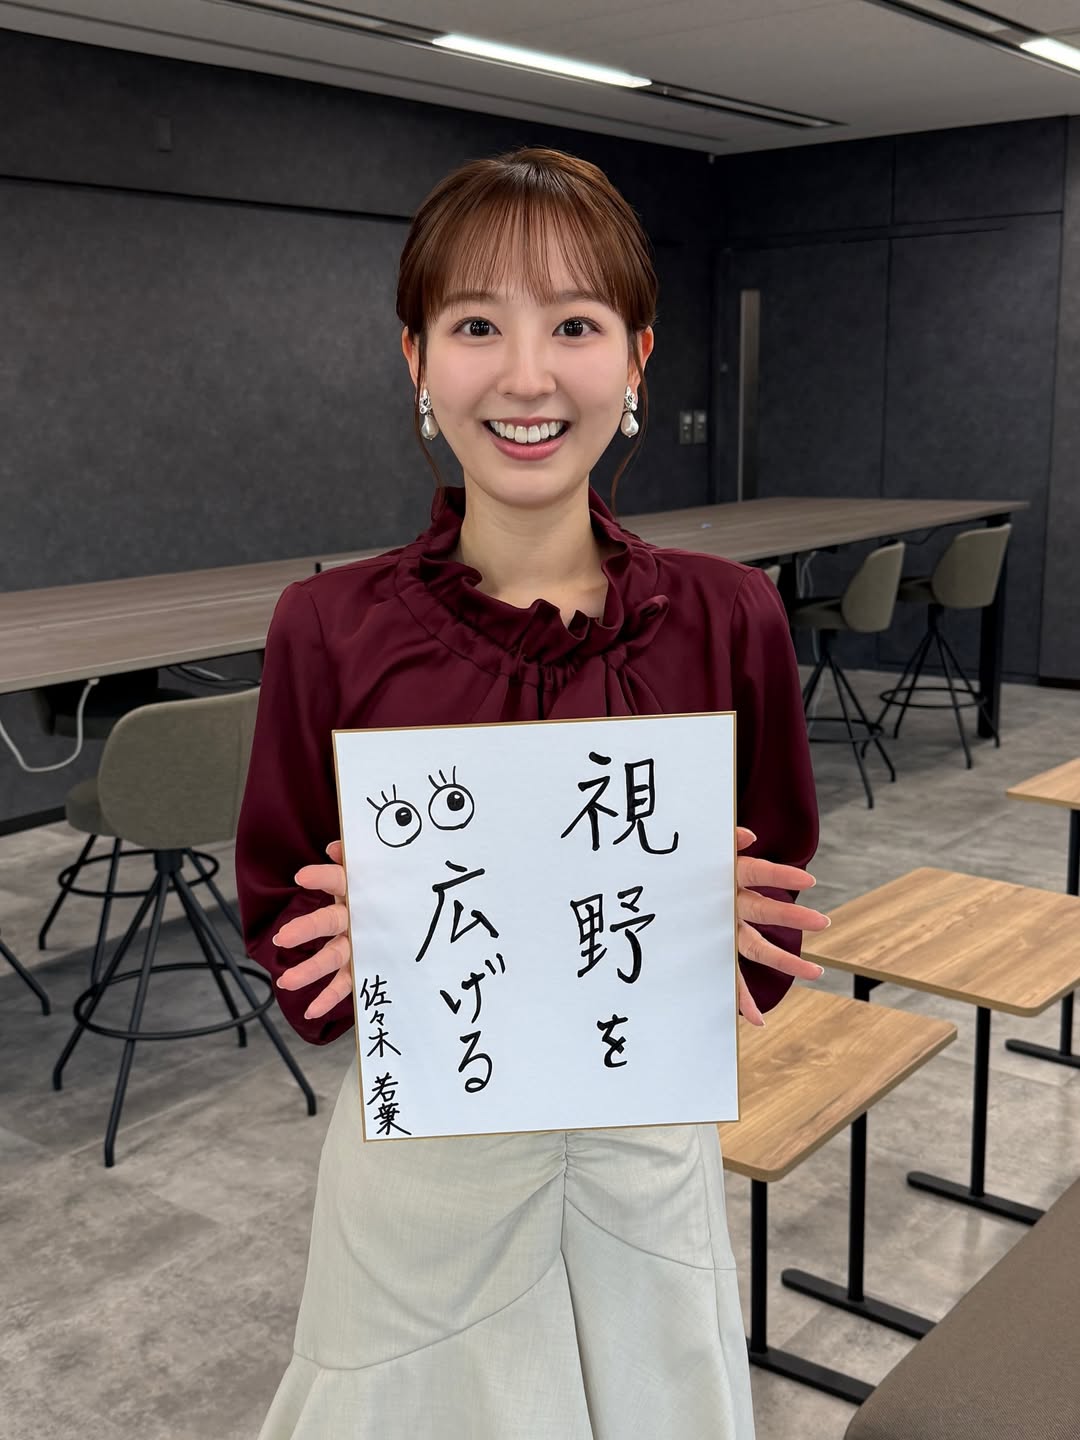 視野を
広げる
佐々木 若葉